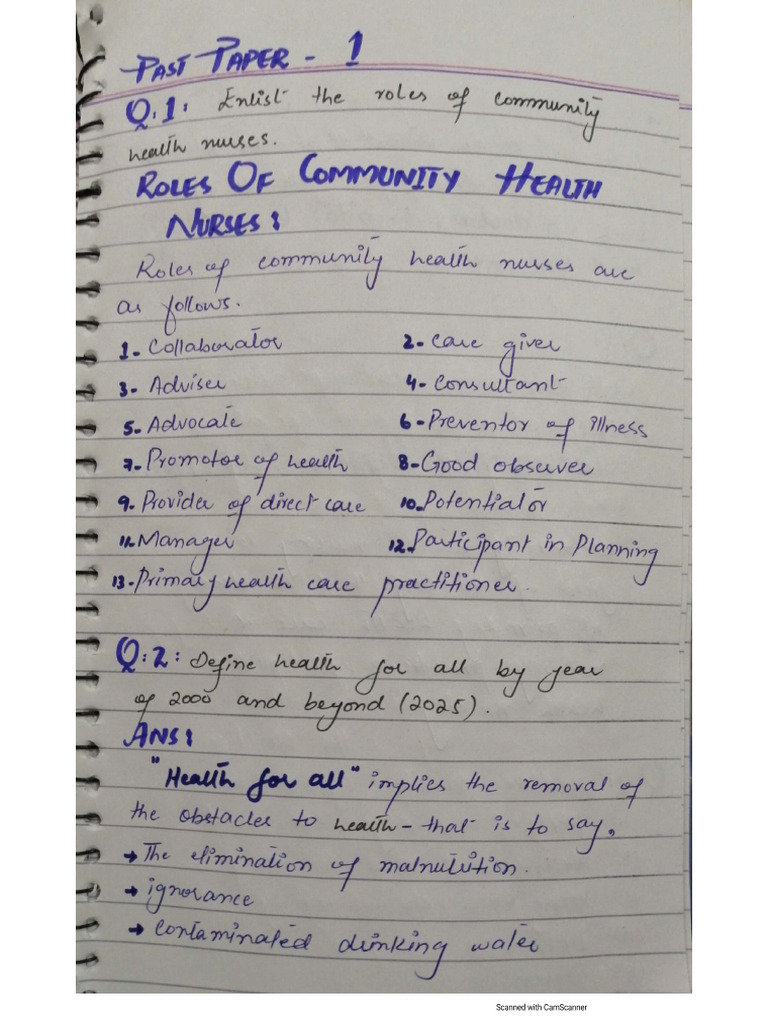 PAST PAPER - 1
Q.1: Enlist the roles of community
health nurses.
ROLES OF COMMUNITY HEALTH
NURSES:
Roles of community health nurses are
as follows.
1- Collaborator 2- care giver
3- Adviser 4- Consultant
5- Advocate 6- Preventor of illness
7- Promotor of health 8- Good observer
9- Provider of direct care 10- Potentiator
11- Manager 12- Participant in Planning
13- Primary health care practitioner.
Q:2: Define health for all by year
of 2000 and beyond (2025).
ANS:
"Health for all" implies the removal of
the obstacles to health - that is to say,
→ The elimination of malnutrition.
→ ignorance
→ contaminated drinking water
Scanned with CamScanner